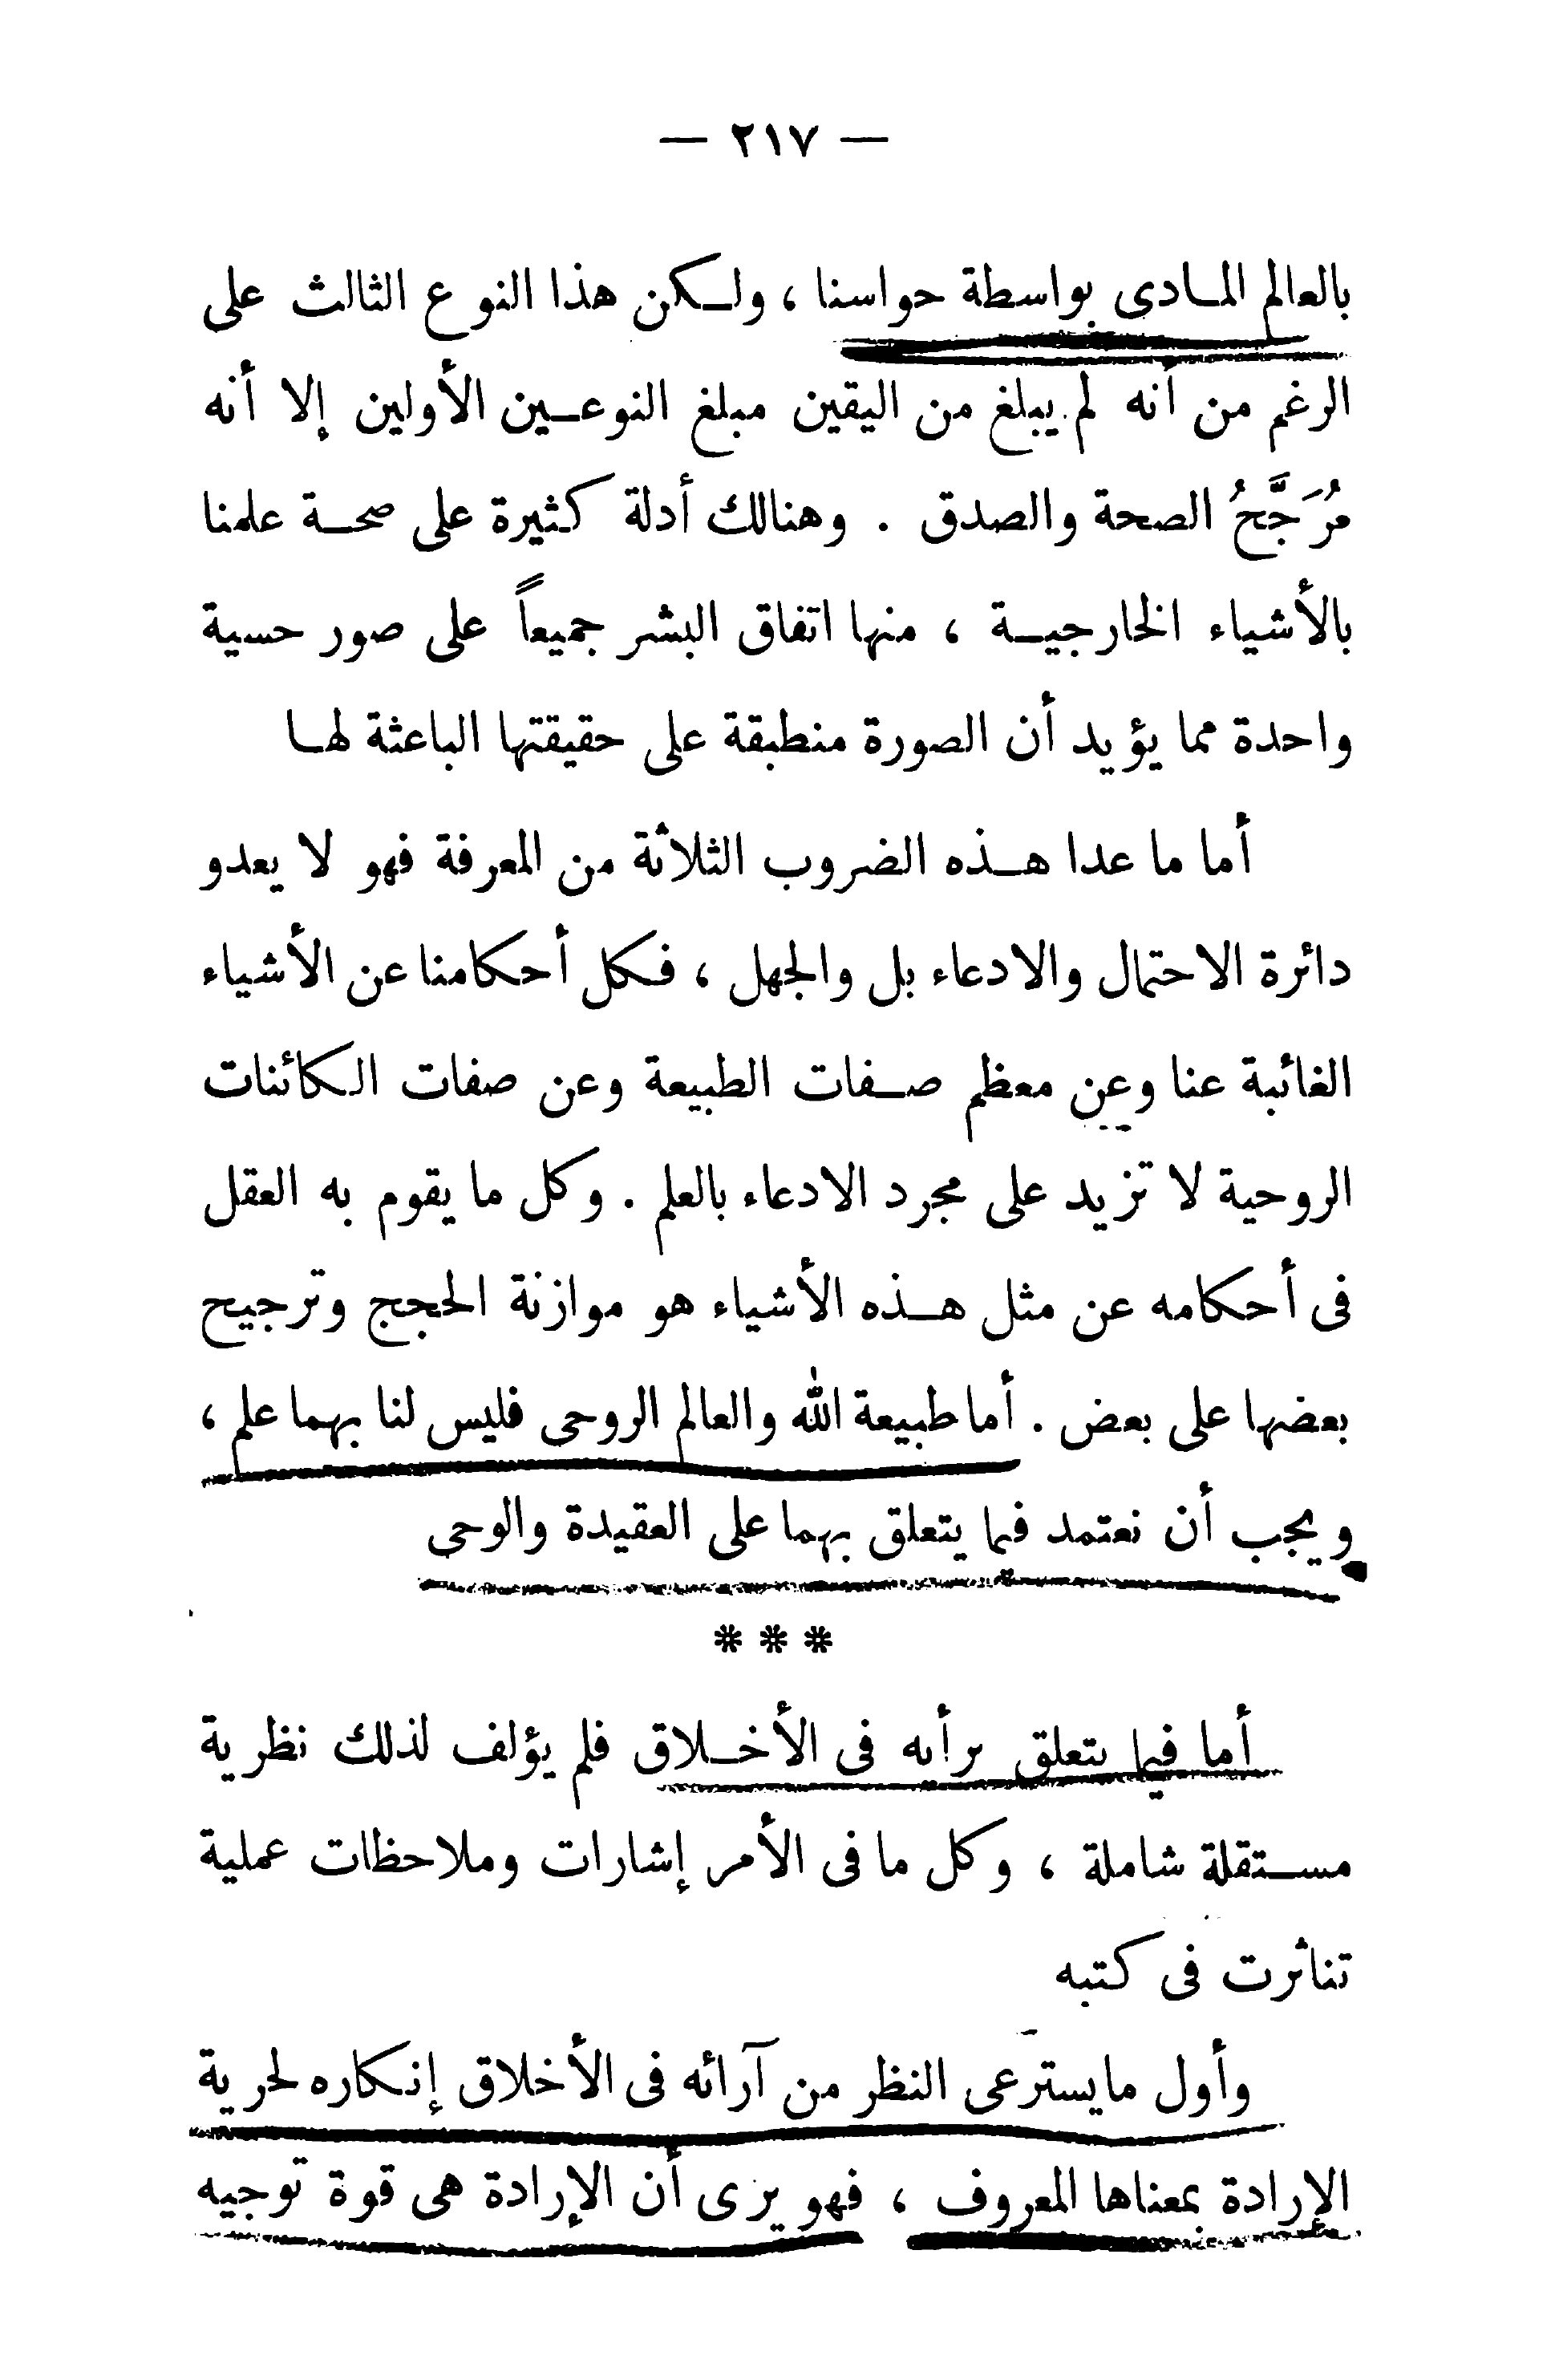 — ٢١٧ —
بالعالم المادى بواسطة حواسنا ، ولكن هذا النوع الثالث على
الرغم من أنه لم يبلغ من اليقين مبلغ النوعين الأولين إلا أنه
مُرَجَّحُ الصحة والصدق . وهنالك أدلة كثيرة على صحة علمنا
بالأشياء الخارجية ، منها اتفاق البشر جميعاً على صور حسية
واحدة مما يؤيد أن الصورة منطبقة على حقيقتها الباعثة لها
أما ما عدا هذه الضروب الثلاثة من المعرفة فهو لا يعدو
دائرة الاحتمال والادعاء بل والجهل ، فكل أحكامنا عن الأشياء
الغائبة عنا وعن معظم صفات الطبيعة وعن صفات الكائنات
الروحية لا تزيد على مجرد الادعاء بالعلم . وكل ما يقوم به العقل
فى أحكامه عن مثل هذه الأشياء هو موازنة الحجج وترجيح
بعضها على بعض . أما طبيعة الله والعالم الروحى فليس لنا بهما علم ،
ويجب أن نعتمد فيما يتعلق بهما على العقيدة والوحى
* * *
أما فيما يتعلق برأيه فى الأخلاق فلم يؤلف لذلك نظرية
مستقلة شاملة ، وكل ما فى الأمر إشارات وملاحظات عملية
تناثرت فى كتبه
وأول ما يسترعى النظر من آرائه فى الأخلاق إنكاره لحرية
الإرادة بمعناها المعروف ، فهو يرى أن الإرادة هى قوة توجيه